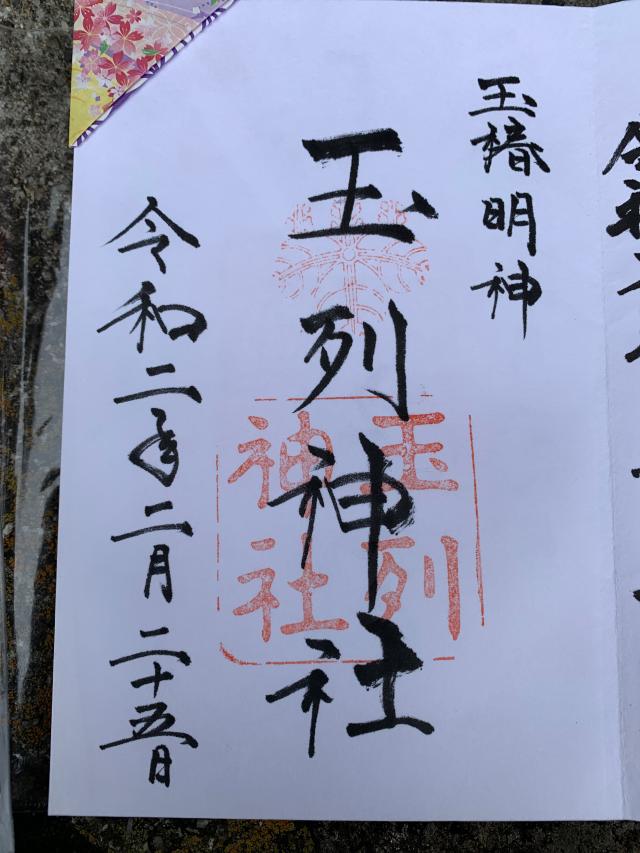 玉椿明神
玉列神社
玉列
神社
令和二年二月二十五日